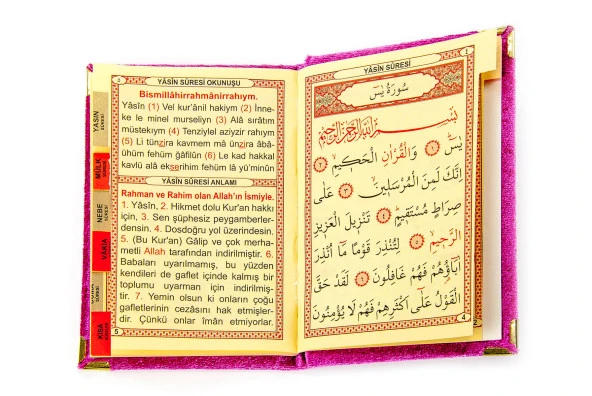 YASİN
SÛRESİ
MÜLK
SÛRESİ
NEBE
SÛRESİ
VAKIA
KISA
5
YÂSİN SÛRESİ OKUNUŞU
Bismillâhirrahmânirrahıym.
Yâsîn (1) Vel kur'ânil hakiym (2) İnne-
ke le minel murseliyn (3) Alâ sırâtım
müstekıym (4) Tenziylel aziyzir rahıym
(5) Li tünzira kavmem mâ ünzira âbâ-
ühüm fehüm gâfilûn (6) Le kad hakkal
kavlü alâ ekserihim fehüm lâ yü'minûn
YÂSİN SÛRESİ ANLAMI
Rahman ve Rahim olan Allah'ın İsmiyle.
1. Yâsîn, 2. Hikmet dolu Kur'an hakkı
için, 3. Sen şüphesiz peygamberler-
densin. 4. Dosdoğru yol üzerindesin.
5. (Bu Kur'an) Gâlip ve çok merha-
metli Allah tarafından indirilmiştir. 6.
Babaları uyarılmamış, bu yüzden
kendileri de gaflet içinde kalmış bir
toplumu uyarman için indirilmiş-
tir. 7. Yemin olsun ki onların çoğu
gafletlerinin cezasını hak etmişler-
dir. Çünkü onlar îmân etmiyorlar.
5
YÂSİN SÛRESİ
سُورَةُ يٰسٓ
بِسْمِ اللّٰهِ الرَّحْمٰنِ الرَّحِيمِ
يٰسٓ ﴿١﴾ وَالْقُرْاٰنِ الْحَكِيمِ ﴿٢﴾
اِنَّكَ لَمِنَ الْمُرْسَلِينَ ﴿٣﴾ عَلٰى
صِرَاطٍ مُسْتَقِيمٍ ﴿٤﴾ تَنْزِيلَ الْعَزِيزِ
الرَّحِيمِ ﴿٥﴾ لِتُنْذِرَ قَوْمًا مَٓا اُنْذِرَ
اٰبَٓاؤُهُمْ فَهُمْ غَافِلُونَ ﴿٦﴾ لَقَدْ حَقَّ
الْقَوْلُ عَلٰٓى اَكْثَرِهِمْ فَهُمْ لَا يُؤْمِنُونَ
4